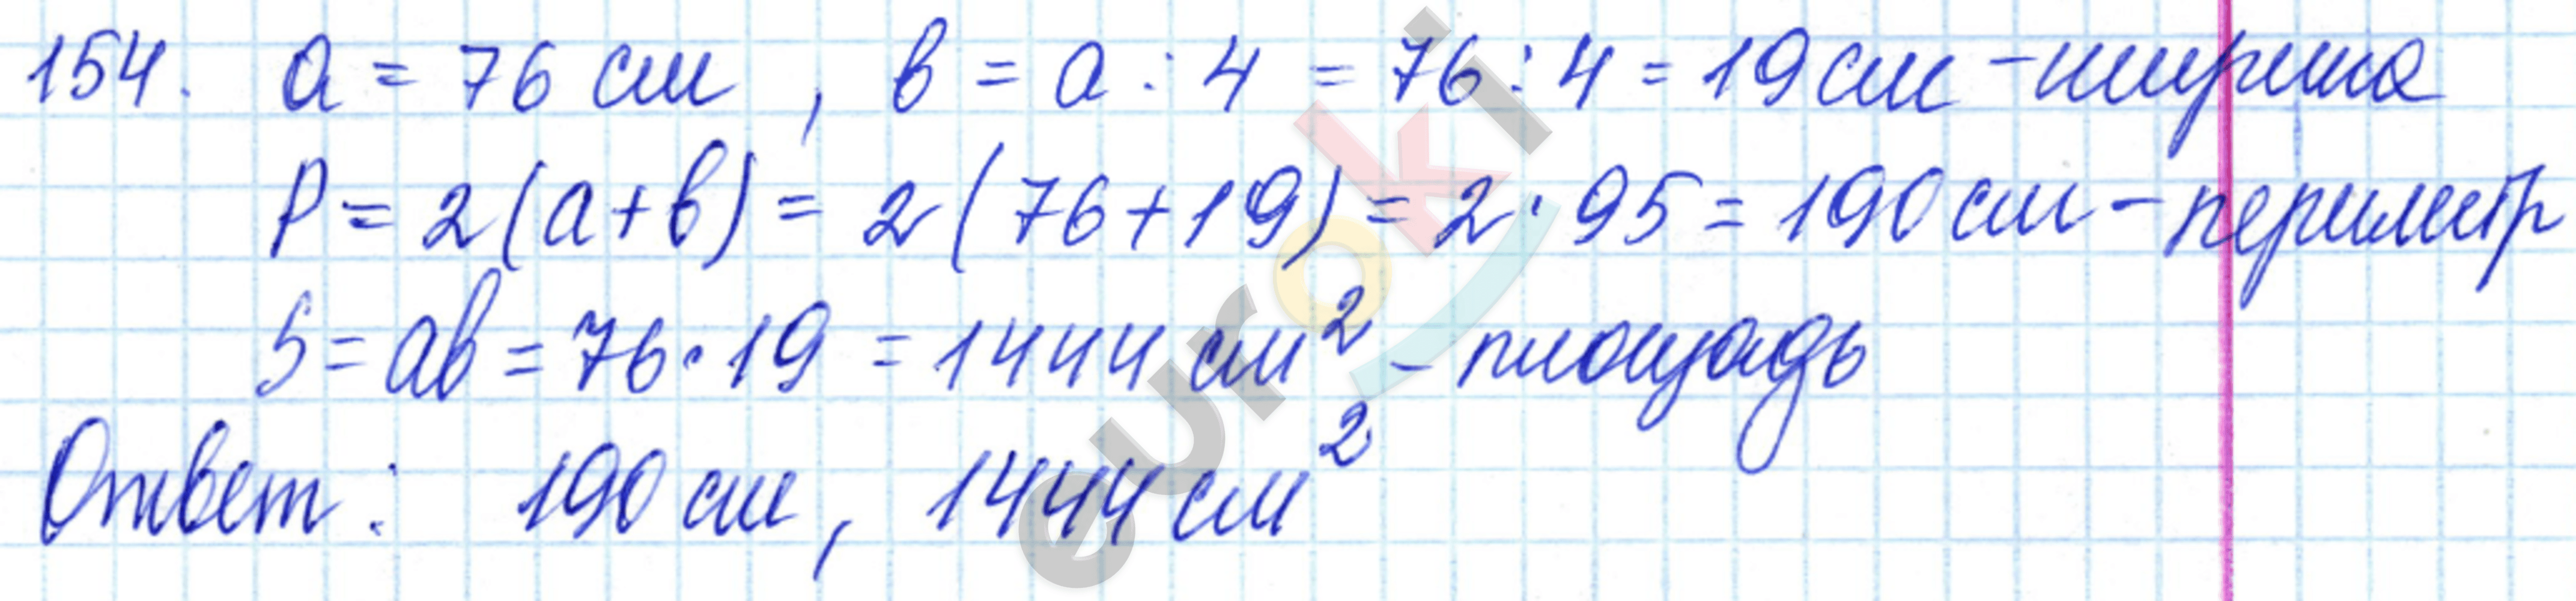 154. a = 76 см, в = a : 4 = 76 : 4 = 19 см – ширина
P = 2(a+в) = 2(76+19) = 2·95 = 190 см – периметр
S = aв = 76·19 = 1444 см² – площадь
Ответ: 190 см, 1444 см²
euroki